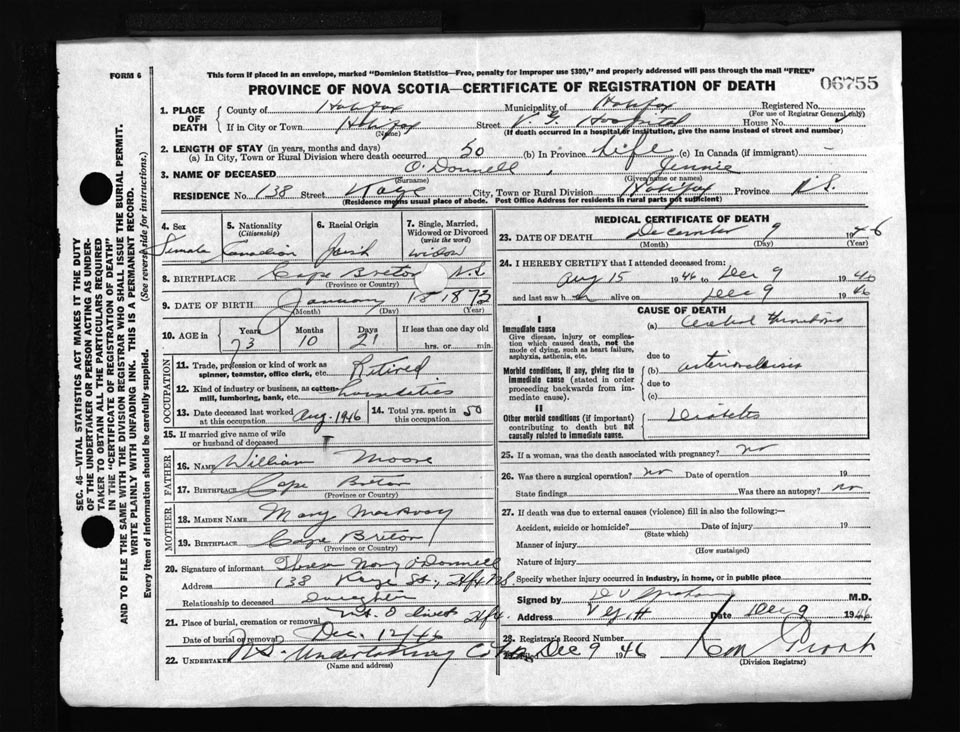 FORM 6
This form if placed in an envelope, marked "Dominion Statistics—Free, penalty for improper use $300," and properly addressed will pass through the mail "FREE"
PROVINCE OF NOVA SCOTIA—CERTIFICATE OF REGISTRATION OF DEATH
06755
SEC. 46—VITAL STATISTICS ACT MAKES IT THE DUTY
OF THE UNDERTAKER OR PERSON ACTING AS UNDER-
TAKER TO OBTAIN ALL THE PARTICULARS REQUIRED
IN THE "CERTIFICATE OF REGISTRATION OF DEATH"
AND TO FILE THE SAME WITH THE DIVISION REGISTRAR WHO SHALL ISSUE THE BURIAL PERMIT.
WRITE PLAINLY WITH UNFADING INK. THIS IS A PERMANENT RECORD.
Every item of information should be carefully supplied. (See reverse side for instructions.)
1. PLACE OF DEATH
County of Halifax Municipality of Halifax Registered No.
(For use of Registrar General only)
If in City or Town Halifax Street V. G. Hospital House No.
(Name) (If death occurred in a hospital or institution, give the name instead of street and number)
2. LENGTH OF STAY (in years, months and days)
(a) In City, Town or Rural Division where death occurred 50 (b) In Province Life (c) In Canada (if immigrant) —
3. NAME OF DECEASED O'Donnell, Jennie
(Surname) (Given name or names)
RESIDENCE No. 138 Street Kaye City, Town or Rural Division Halifax Province N.S.
(Residence means usual place of abode. Post Office Address for residents in rural parts not sufficient)
4. Sex
Female
5. Nationality
(Citizenship)
Canadian
6. Racial Origin
Irish
7. Single, Married, Widowed or Divorced
(write the word)
Widow
8. BIRTHPLACE Cape Breton N.S.
(Province or Country)
9. DATE OF BIRTH January 18 1873
(Month) (Day) (Year)
10. AGE in Years Months Days If less than one day old
73 10 21 hrs. or min.
OCCUPATION
11. Trade, profession or kind of work as
spinner, teamster, office clerk, etc. Retired
12. Kind of industry or business, as cotton-
mill, lumbering, bank, etc.
13. Date deceased last worked
at this occupation Aug. 1946
14. Total yrs. spent in
this occupation 50
15. If married give name of wife
or husband of deceased
FATHER
16. NAME William Moore
17. BIRTHPLACE Cape Breton
(Province or Country)
MOTHER
18. MAIDEN NAME Mary
19. BIRTHPLACE Cape Breton
(Province or Country)
20. Signature of informant O'Donnell
Address 138 Kaye St., Hfx N.S.
Relationship to deceased Daughter
21. Place of burial, cremation or removal Mt. Olivet Hfx.
Date of burial or removal Dec. 12/46
22. UNDERTAKER N.S. Undertaking Co
(Name and address)
MEDICAL CERTIFICATE OF DEATH
23. DATE OF DEATH December 9 1946
(Month) (Day) (Year)
24. I HEREBY CERTIFY that I attended deceased from:
Aug 15 1946 to Dec 9 1946
and last saw h er alive on Dec 9 1946
CAUSE OF DEATH
I
Immediate cause
Give disease, injury or complica-
tion which caused death, not the
mode of dying, such as heart failure,
asphyxia, asthenia, etc.
(a) Cerebral thrombosis
due to
Morbid conditions, if any, giving rise to
immediate cause (stated in order
proceeding backwards from im-
mediate cause).
(b) arteriosclerosis
due to
(c)
II
Other morbid conditions (if important)
contributing to death but not
causally related to immediate cause.
Diabetes
25. If a woman, was the death associated with pregnancy? no
26. Was there a surgical operation? no Date of operation 19
State findings Was there an autopsy? no
27. If death was due to external causes (violence) fill in also the following:—
Accident, suicide or homicide? Date of injury 19
(State which)
Manner of injury
(How sustained)
Nature of injury
Specify whether injury occurred in industry, in home, or in public place
Signed by M.D.
Address V.G.H. Date Dec 9 1946
28. Registrar's Record Number
Filed Dec 9 1946
(Division Registrar)